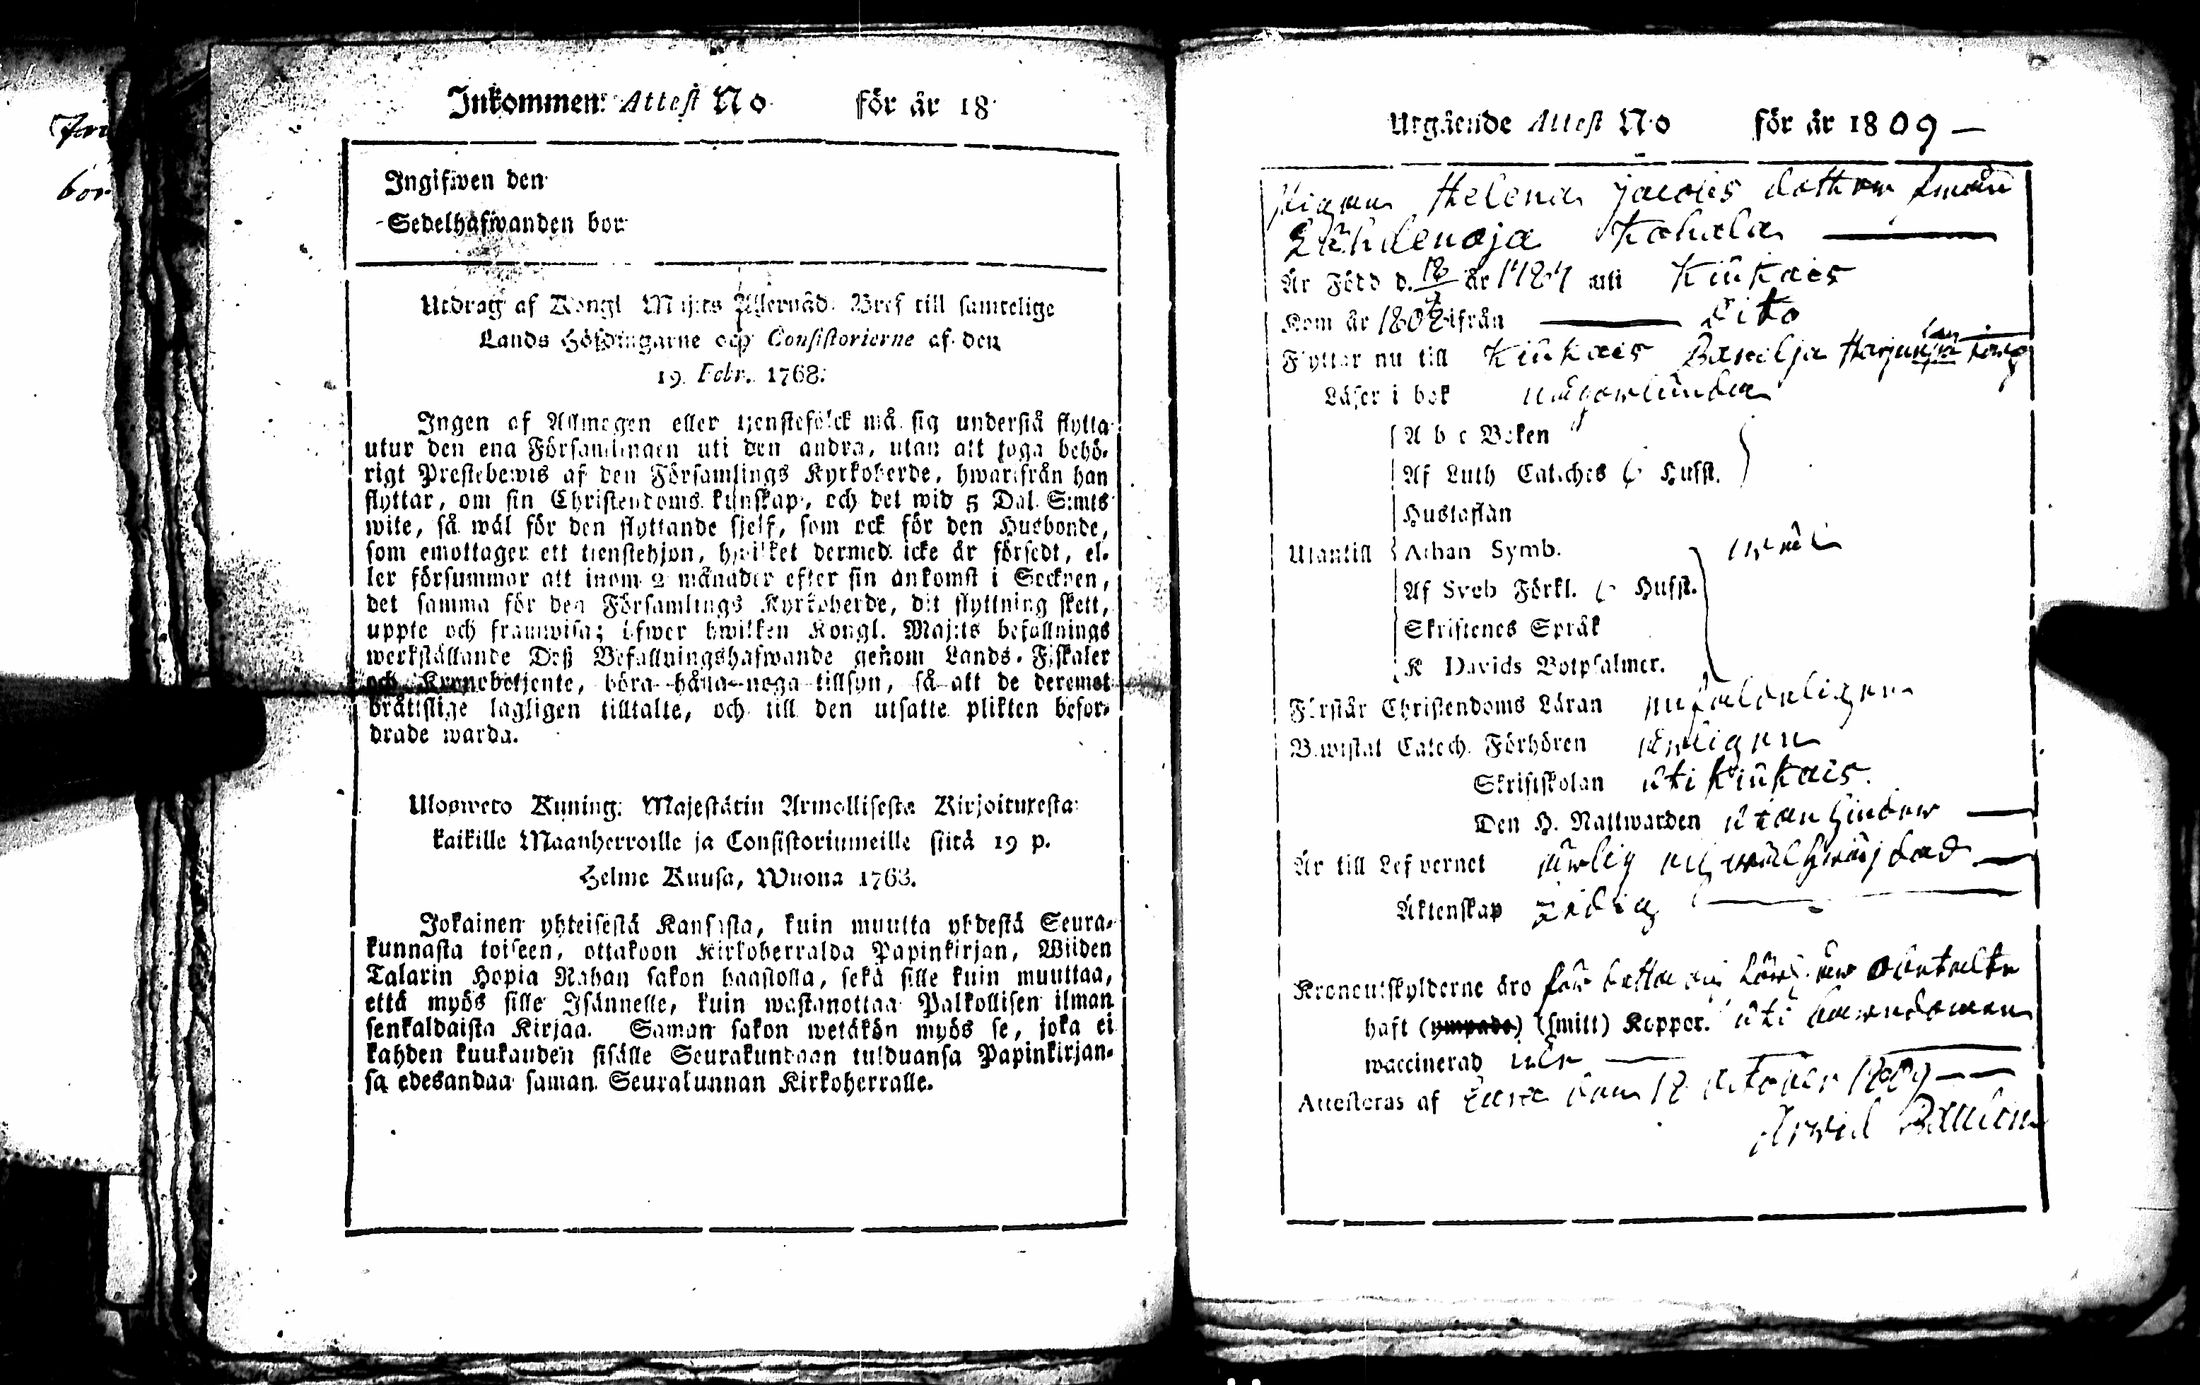 Inkommen: Attest No för år 18
Ingifwen den
Sedelhafwanden bor
Utdrag af Kongl. Maj:ts Allernåd. Bref till samtelige
Lands Höfdingarne och Consistorierne af den
19 Febr. 1768.
Ingen af Allmogen eller tjenstefolck må sig understå flytta
utur den ena Församlingen uti den andra, utan att taga behö-
rigt Prestebewis af den Församlings Kyrkoherde, hwarifrån han
flyttar, om sin Christendoms kunskap, och det wid 5 Dal. S:mts
wite, så wäl för den flyttande sjelf, som ock för den Husbonde,
som emottager ett tienstehjon, hwilket dermed icke är försedt, el-
ler försummar att inom 2 månader efter sin ankomst i Socknen,
det samma för den Församlings Kyrkoherde, dit flyttning skett,
uppte och framwisa; öfwer hwilken Kongl. Maj:ts befallnings
werkställande Deß Befallningshafwande genom Lands-Fiskaler
och Kronobetjente, böra hålla noga tillsyn, så att de deremot
brättslige lagligen tilltalte, och till den utsatte plikten befor-
drade warda.
Ulosweto Kuning: Majestätin Armollisesta Kirjoituxesta
kaikille Maanherroille ja Consistoriumeille siitä 19 p.
Helme Kuusa, Wuona 1768.
Jokainen yhteisestä Kansasta, kuin muutta yhdestä Seura-
kunnasta toiseen, ottakoon Kirkoherralda Papinkirjan, Wiiden
Talarin Hopia Rahan sakon haastolla, sekä sille kuin muuttaa,
että myös sille Isännelle, kuin wastanottaa Palkollisen ilman
senkaldaista Kirjaa. Saman sakon wetäkön myös se, joka ei
kahden kuukauden sisälle Seurakundaan tulduansa Papinkirjan-
sa edesandaa saman Seurakunnan Kirkoherralle.
Utgående Attest No för år 1809
Pigan Helena Jacobs dotter ifrån
Lähdenoja Kohala
Är Född d. 18 år 1787 uti Kiukais
Kom år 1808 ifrån Dito
Flyttar nu till Kiukais Panelja Harjun
Läser i bok någorlunda
A b c Boken
Af Luth Catches Husst.
Hustaflan
Utantill Athan Symb.
Af Sveb Förkl. Husst.
Skriftenes Språk
K Davids Botpsalmer.
Förstår Christendoms Läran enfaldeligen
Bewistat Catech. Förhören årligen
Skriftskolan uti Kiukais.
Den H. Nattwarden utan hinder
Är till Lefvernet ärlig och wälfräjdad
Äktenskap ledig
Kronoutskylderne äro för detta år betalte
haft (ympade) (smitt) Koppor. uti barndomen
waccinerad
Attesteras af Eura den 18 October 1809
Arvid